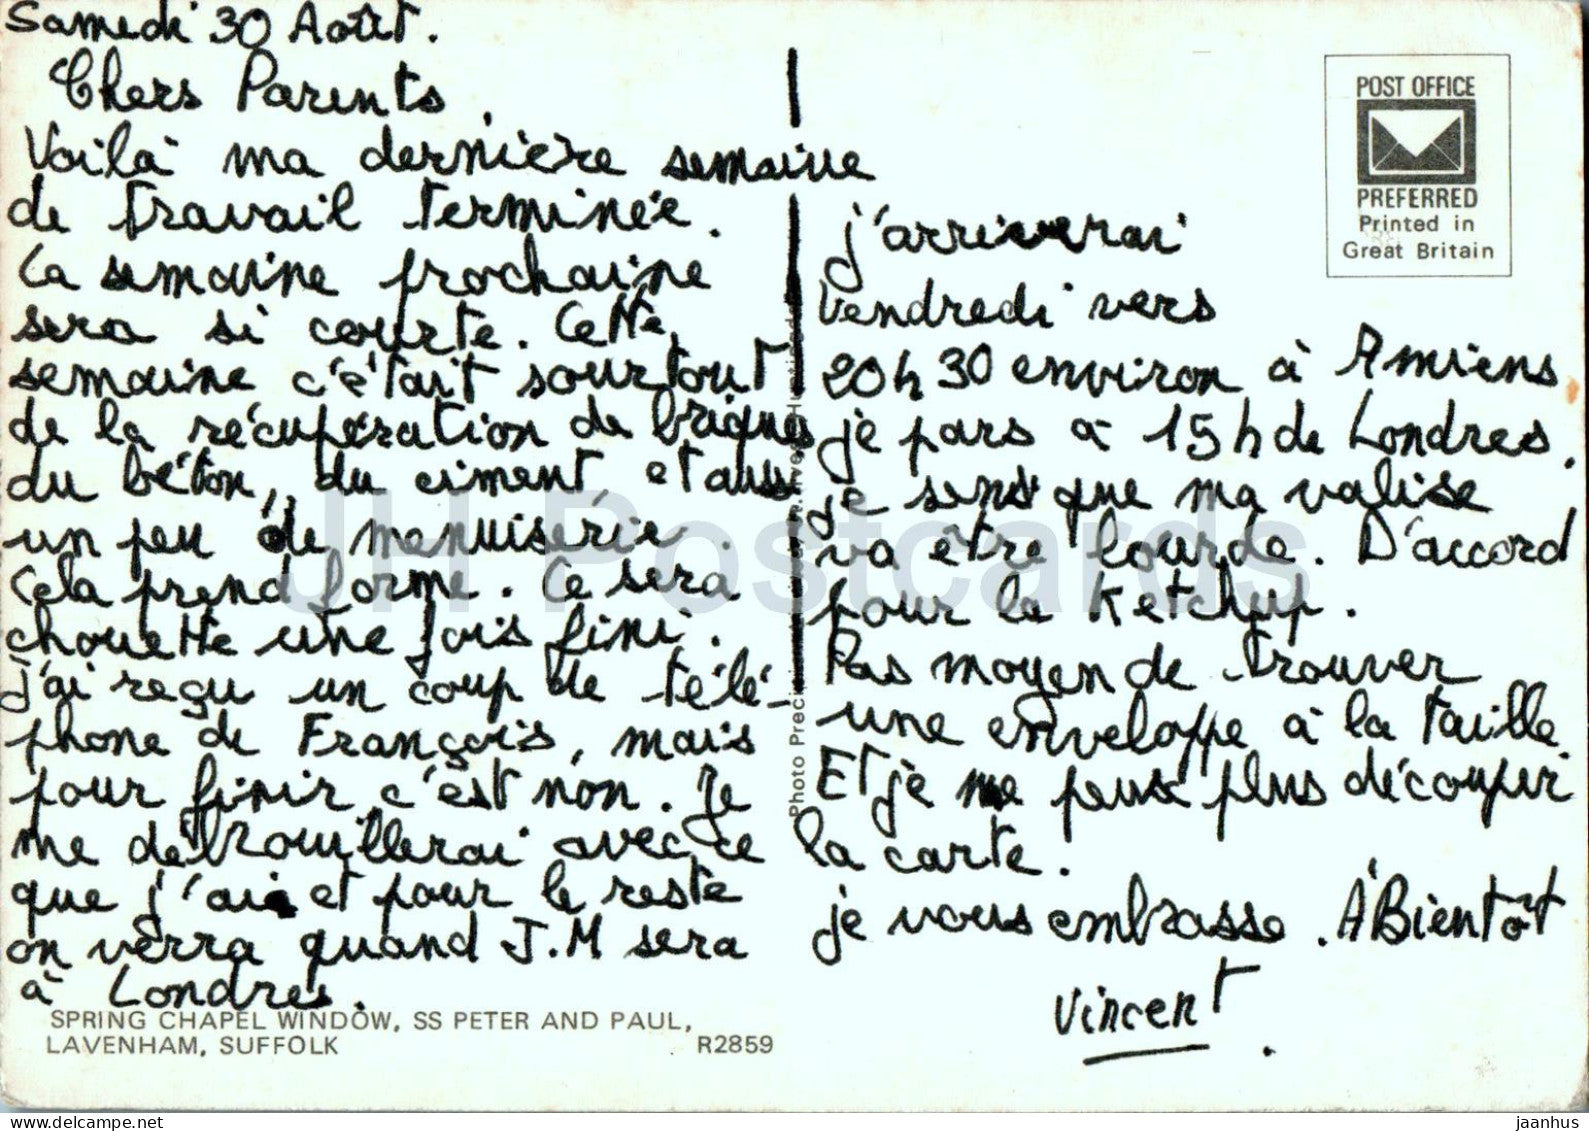 Samedi 30 Août.
Chers Parents,
Voilà ma dernière semaine
de travail terminée.
La semaine prochaine
sera si courte. Cette
semaine c'était sourtout
de la récupération de briques
du béton, du ciment, et aussi
un peu de menuiserie.
Cela prend forme. Ce sera
chouette une fois fini.
J'ai reçu un coup de télé-
phone de François, mais
pour finir c'est non. Je
me débrouillerai avec ce
que j'ai et pour le reste
on verra quand J.M sera
à Londres.
j'arriverai
Vendredi vers
20h30 environ à Amiens
je pars à 15h de Londres.
Je sens que ma valise
va être lourde. D'accord
pour le Ketchup.
Pas moyen de trouver
une enveloppe à la taille.
Et je ne peux plus découper
la carte.
je vous embrasse. À Bientôt
Vincent.
POST OFFICE
PREFERRED
Printed in
Great Britain
SPRING CHAPEL WINDOW, SS PETER AND PAUL,
LAVENHAM, SUFFOLK R2859
Photo Precision
JH Postcards
jaanhus